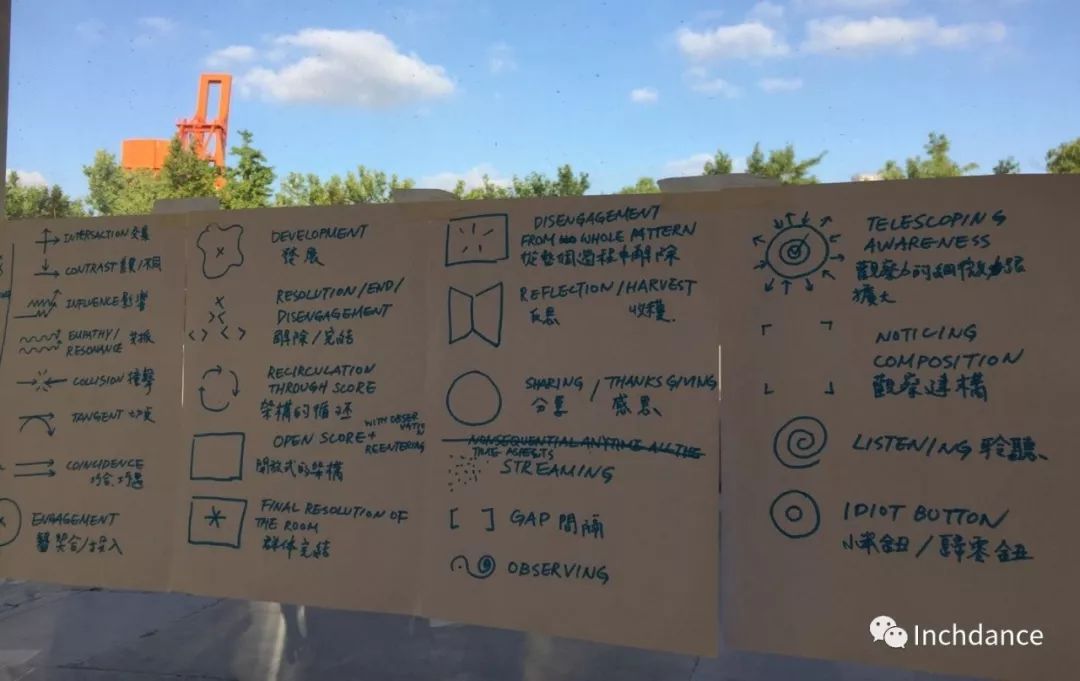 INTERSACTION 交集
CONTRAST 差異/不同
INFLUENCE 影響
EMPATHY/ 共振
RESONANCE
COLLISION 撞擊
TANGENT 切
COINCIDENCE
巧合 巧遇
ENGAGEMENT
契合/投入
DEVELOPMENT
發展
RESOLUTION/END/
DISENGAGEMENT
解除/完結
RECIRCULATION
THROUGH SCORE
架構的循迴
OPEN SCORE +
WITH OBSERVATION
REENTERING
開放式的架構
FINAL RESOLUTION OF
THE ROOM
群体完結
DISENGAGEMENT
FROM WHOLE PATTERN
從整個過程中解除
REFLECTION/HARVEST
反思 收穫
SHARING / THANKS GIVING
分享 感恩
NONSEQUENTIAL ANYTIME ALL THE
TIME ASPECTS
STREAMING
[ ] GAP 間隔
OBSERVING
TELESCOPING
AWARENESS
觀察力的細微
擴大
NOTICING
COMPOSITION
觀察建構
LISTENING 聆聽
IDIOT BUTTON
小笨鈕/歸零鈕
Inchdance